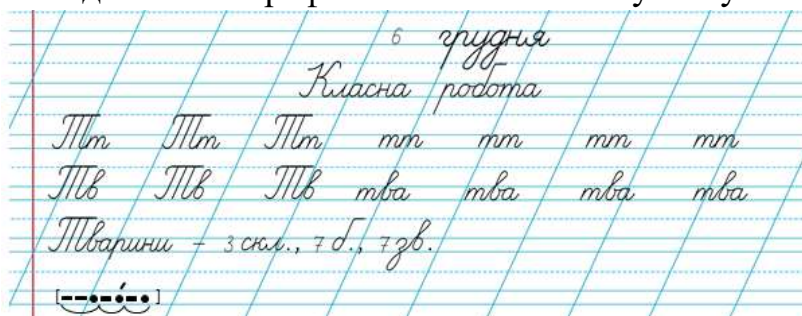 6 грудня
Класна робота
Тт Тт Тт тт тт тт тт
Тв Тв Тв тва тва тва тва
Тварини – 3 скл., 7 б., 7 зв.
[– – • – •́ – •]